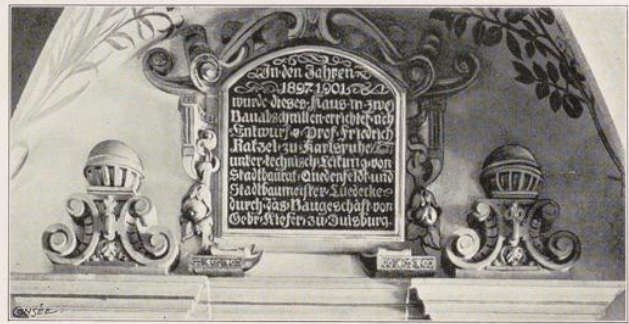 In den Jahren
1897-1901
wurde dieses Haus in zwei
Bauabschnitten errichtet nch
Entwurf v Prof. Friedrich
Ratzel zu Karlsruhe
unter technisch Leitung von
Stadtbaurat Quedenfeldt und
Stadtbaumeister Luedecke
durch das Baugeschäft von
Gebr. Kiefer zu Duisburg.
CONSÉE